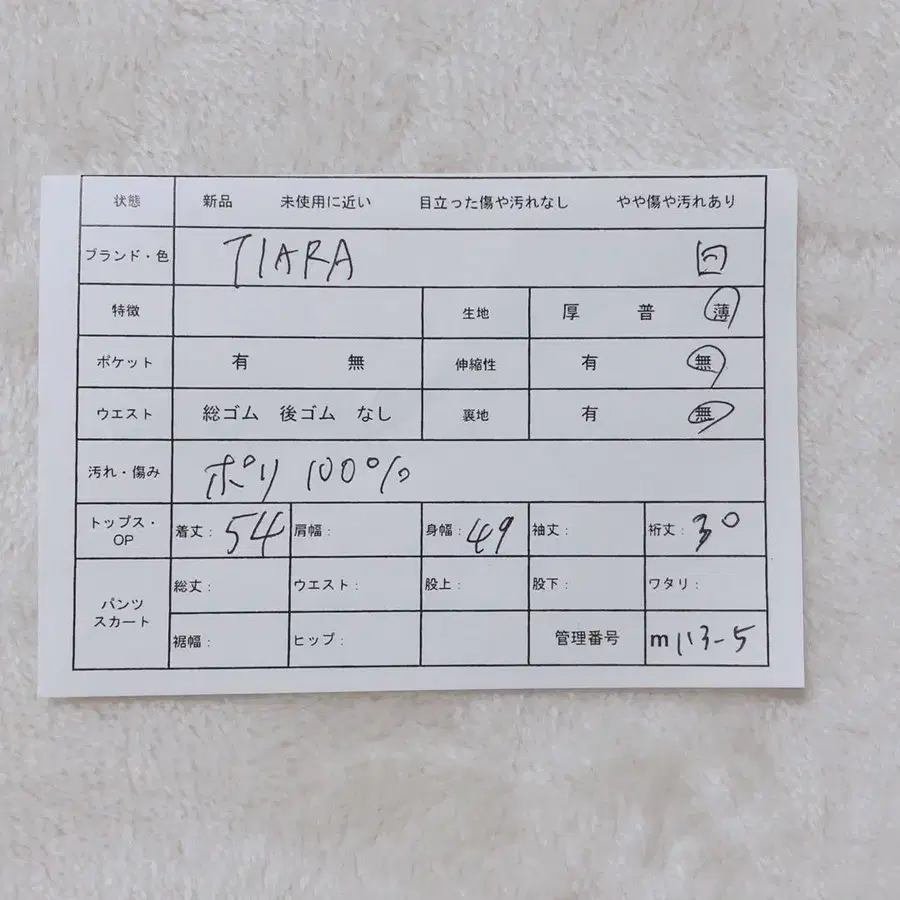 状態 新品 未使用に近い 目立った傷や汚れなし やや傷や汚れあり
ブランド・色 TIARA
特徴 生地 厚 普 薄
ポケット 有 無 伸縮性 有 無
ウエスト 総ゴム 後ゴム なし 裏地 有 無
汚れ・傷み ポリ 100%
トップス・OP 着丈: 54 肩幅: 身幅: 49 袖丈: 裄丈: 30
パンツ
スカート
総丈: ウエスト: 股上: 股下: ワタリ:
裾幅: ヒップ: 管理番号 m113-5